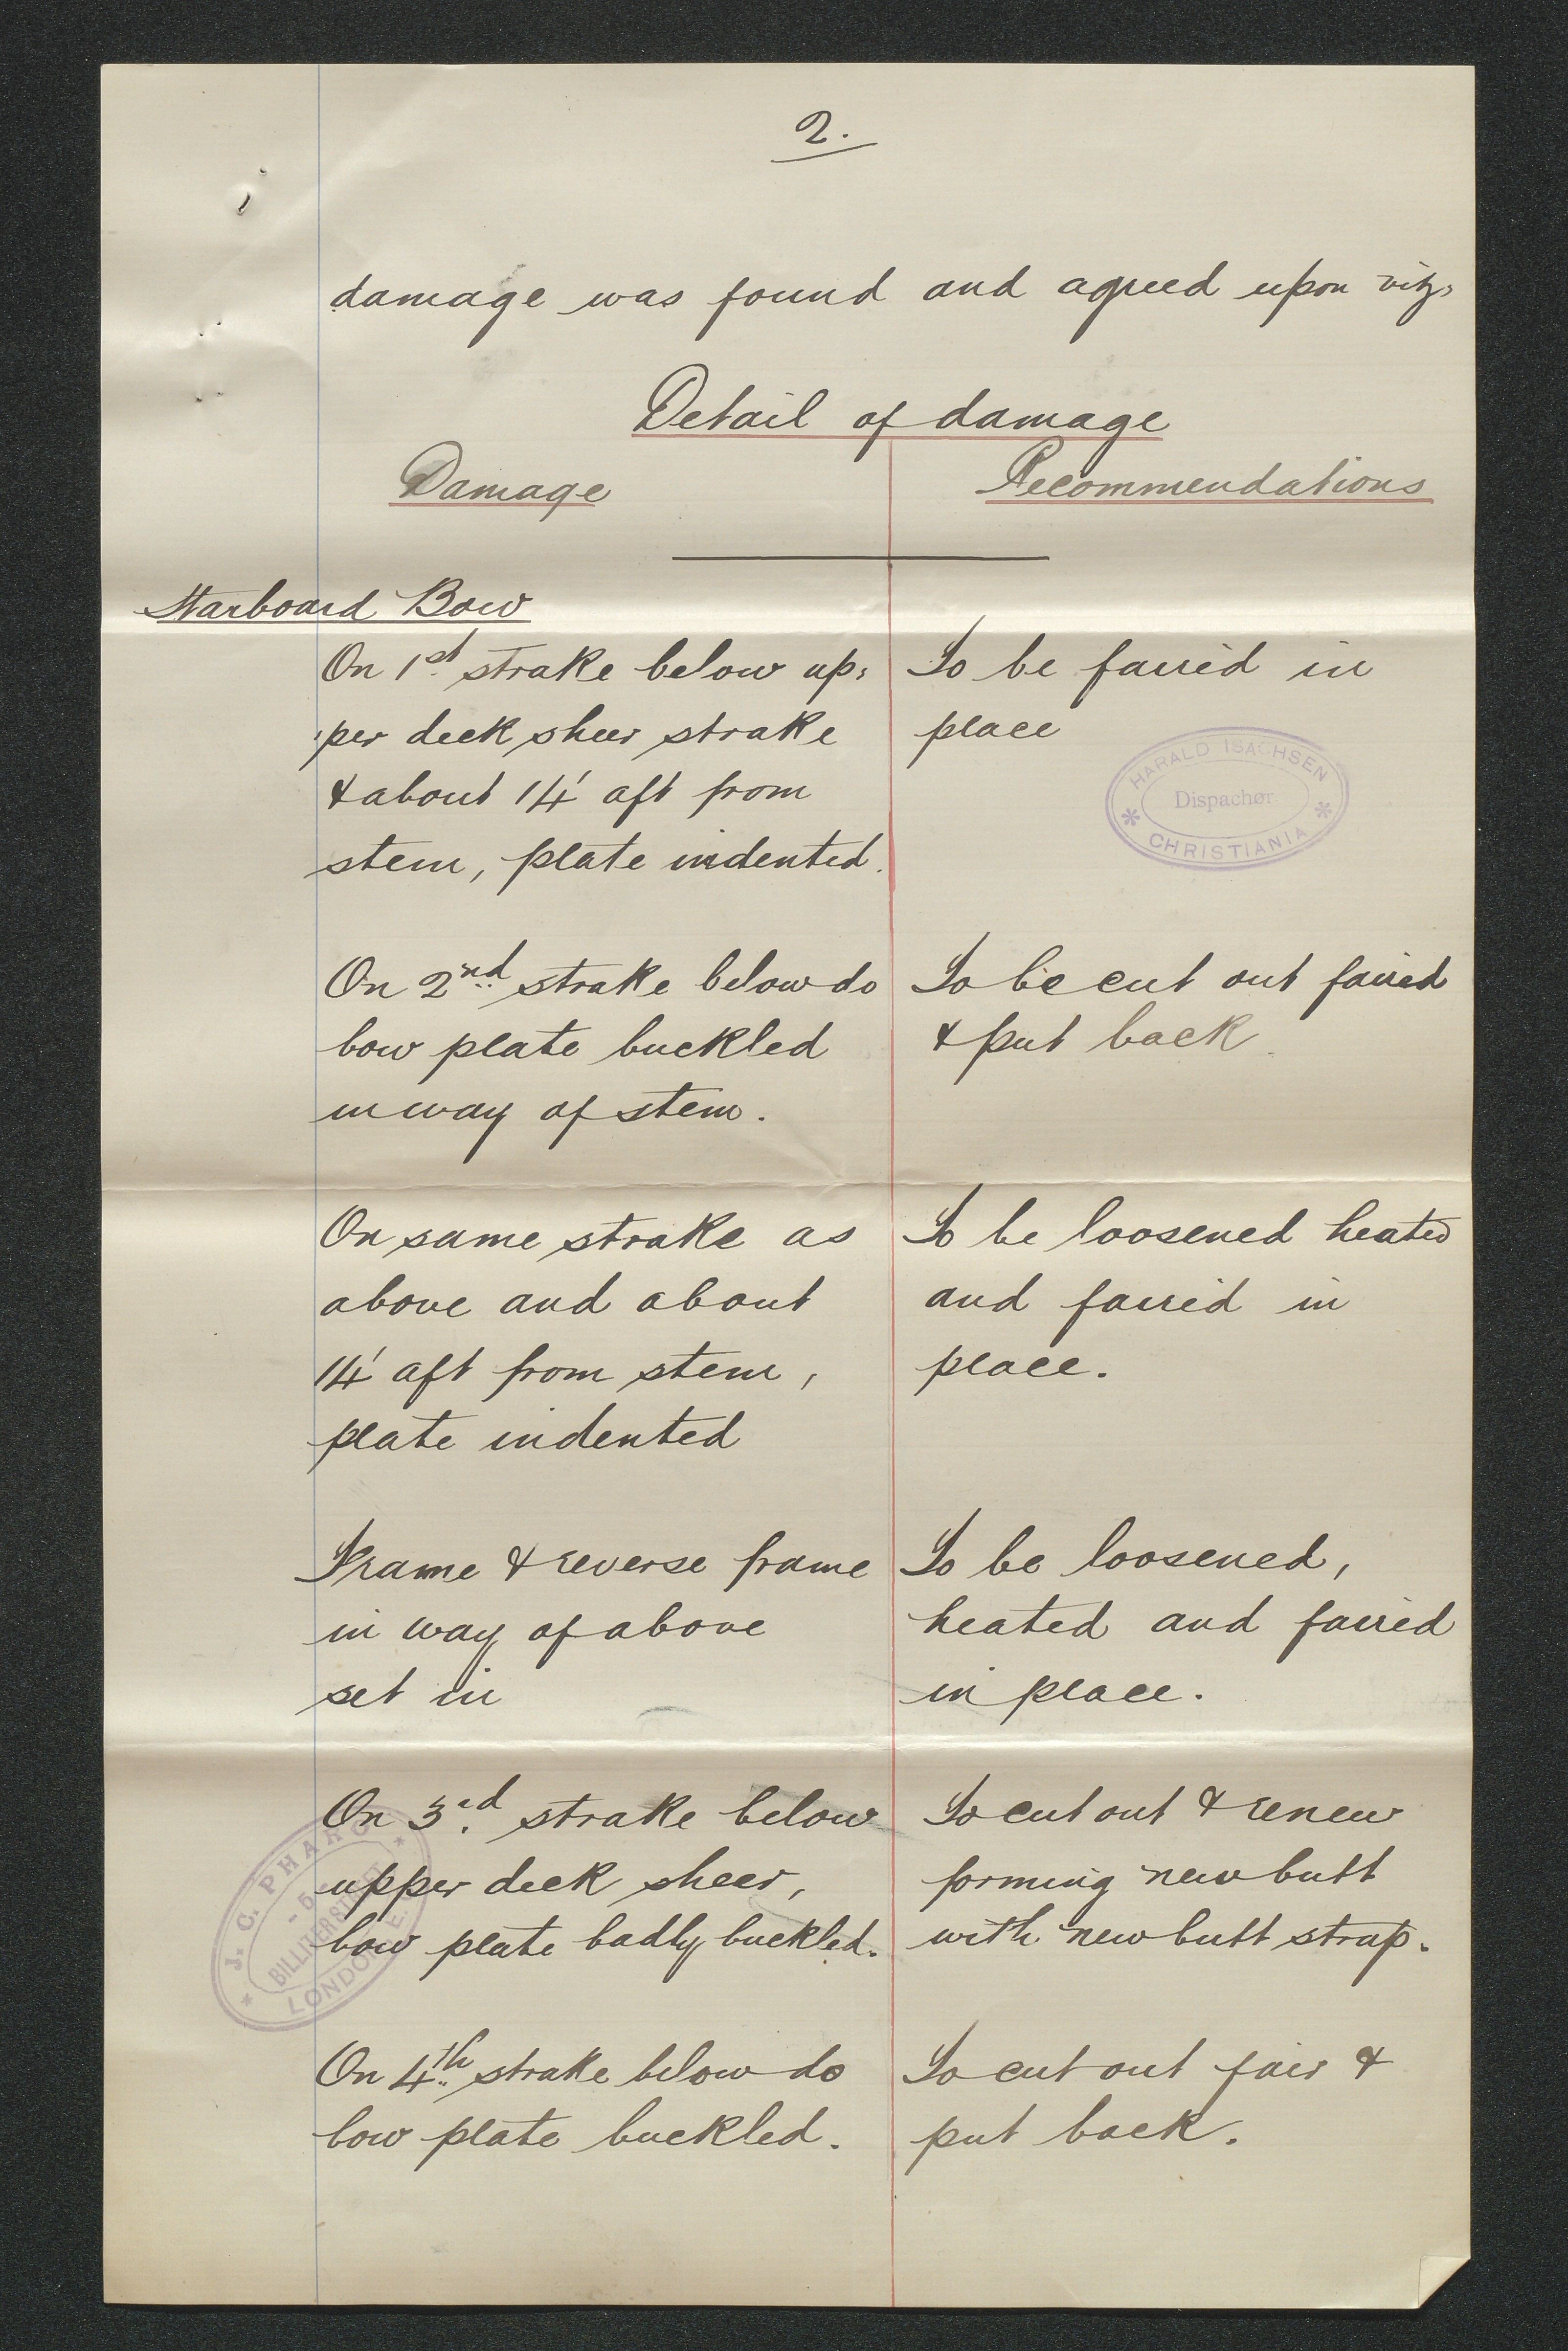 2.
damage was found and agreed upon viz,
Detail of damage
Damage
Recommendations
Starboard Bow
On 1st strake below up:
per deck sheer strake
& about 14' aft from
stem, plate indented.
To be faired in
place
HARALD ISACHSEN
Dispachør
CHRISTIANIA
On 2nd strake below do
bow plate buckled
in way of stem.
To be cut out faired
& put back
On same strake as
above and about
14' aft from stem,
plate indented
To be loosened heated
and faired in
place.
Frame & reverse frame
in way of above
set in
To be loosened,
heated and faired
in place.
On 3rd strake below
upper deck sheer,
bow plate badly buckled.
To cut out & renew
forming new butt
with new butt strap.
J. C. PHARO
LONDON E.
On 4th strake below do
bow plate buckled.
To cut out fair &
put back.